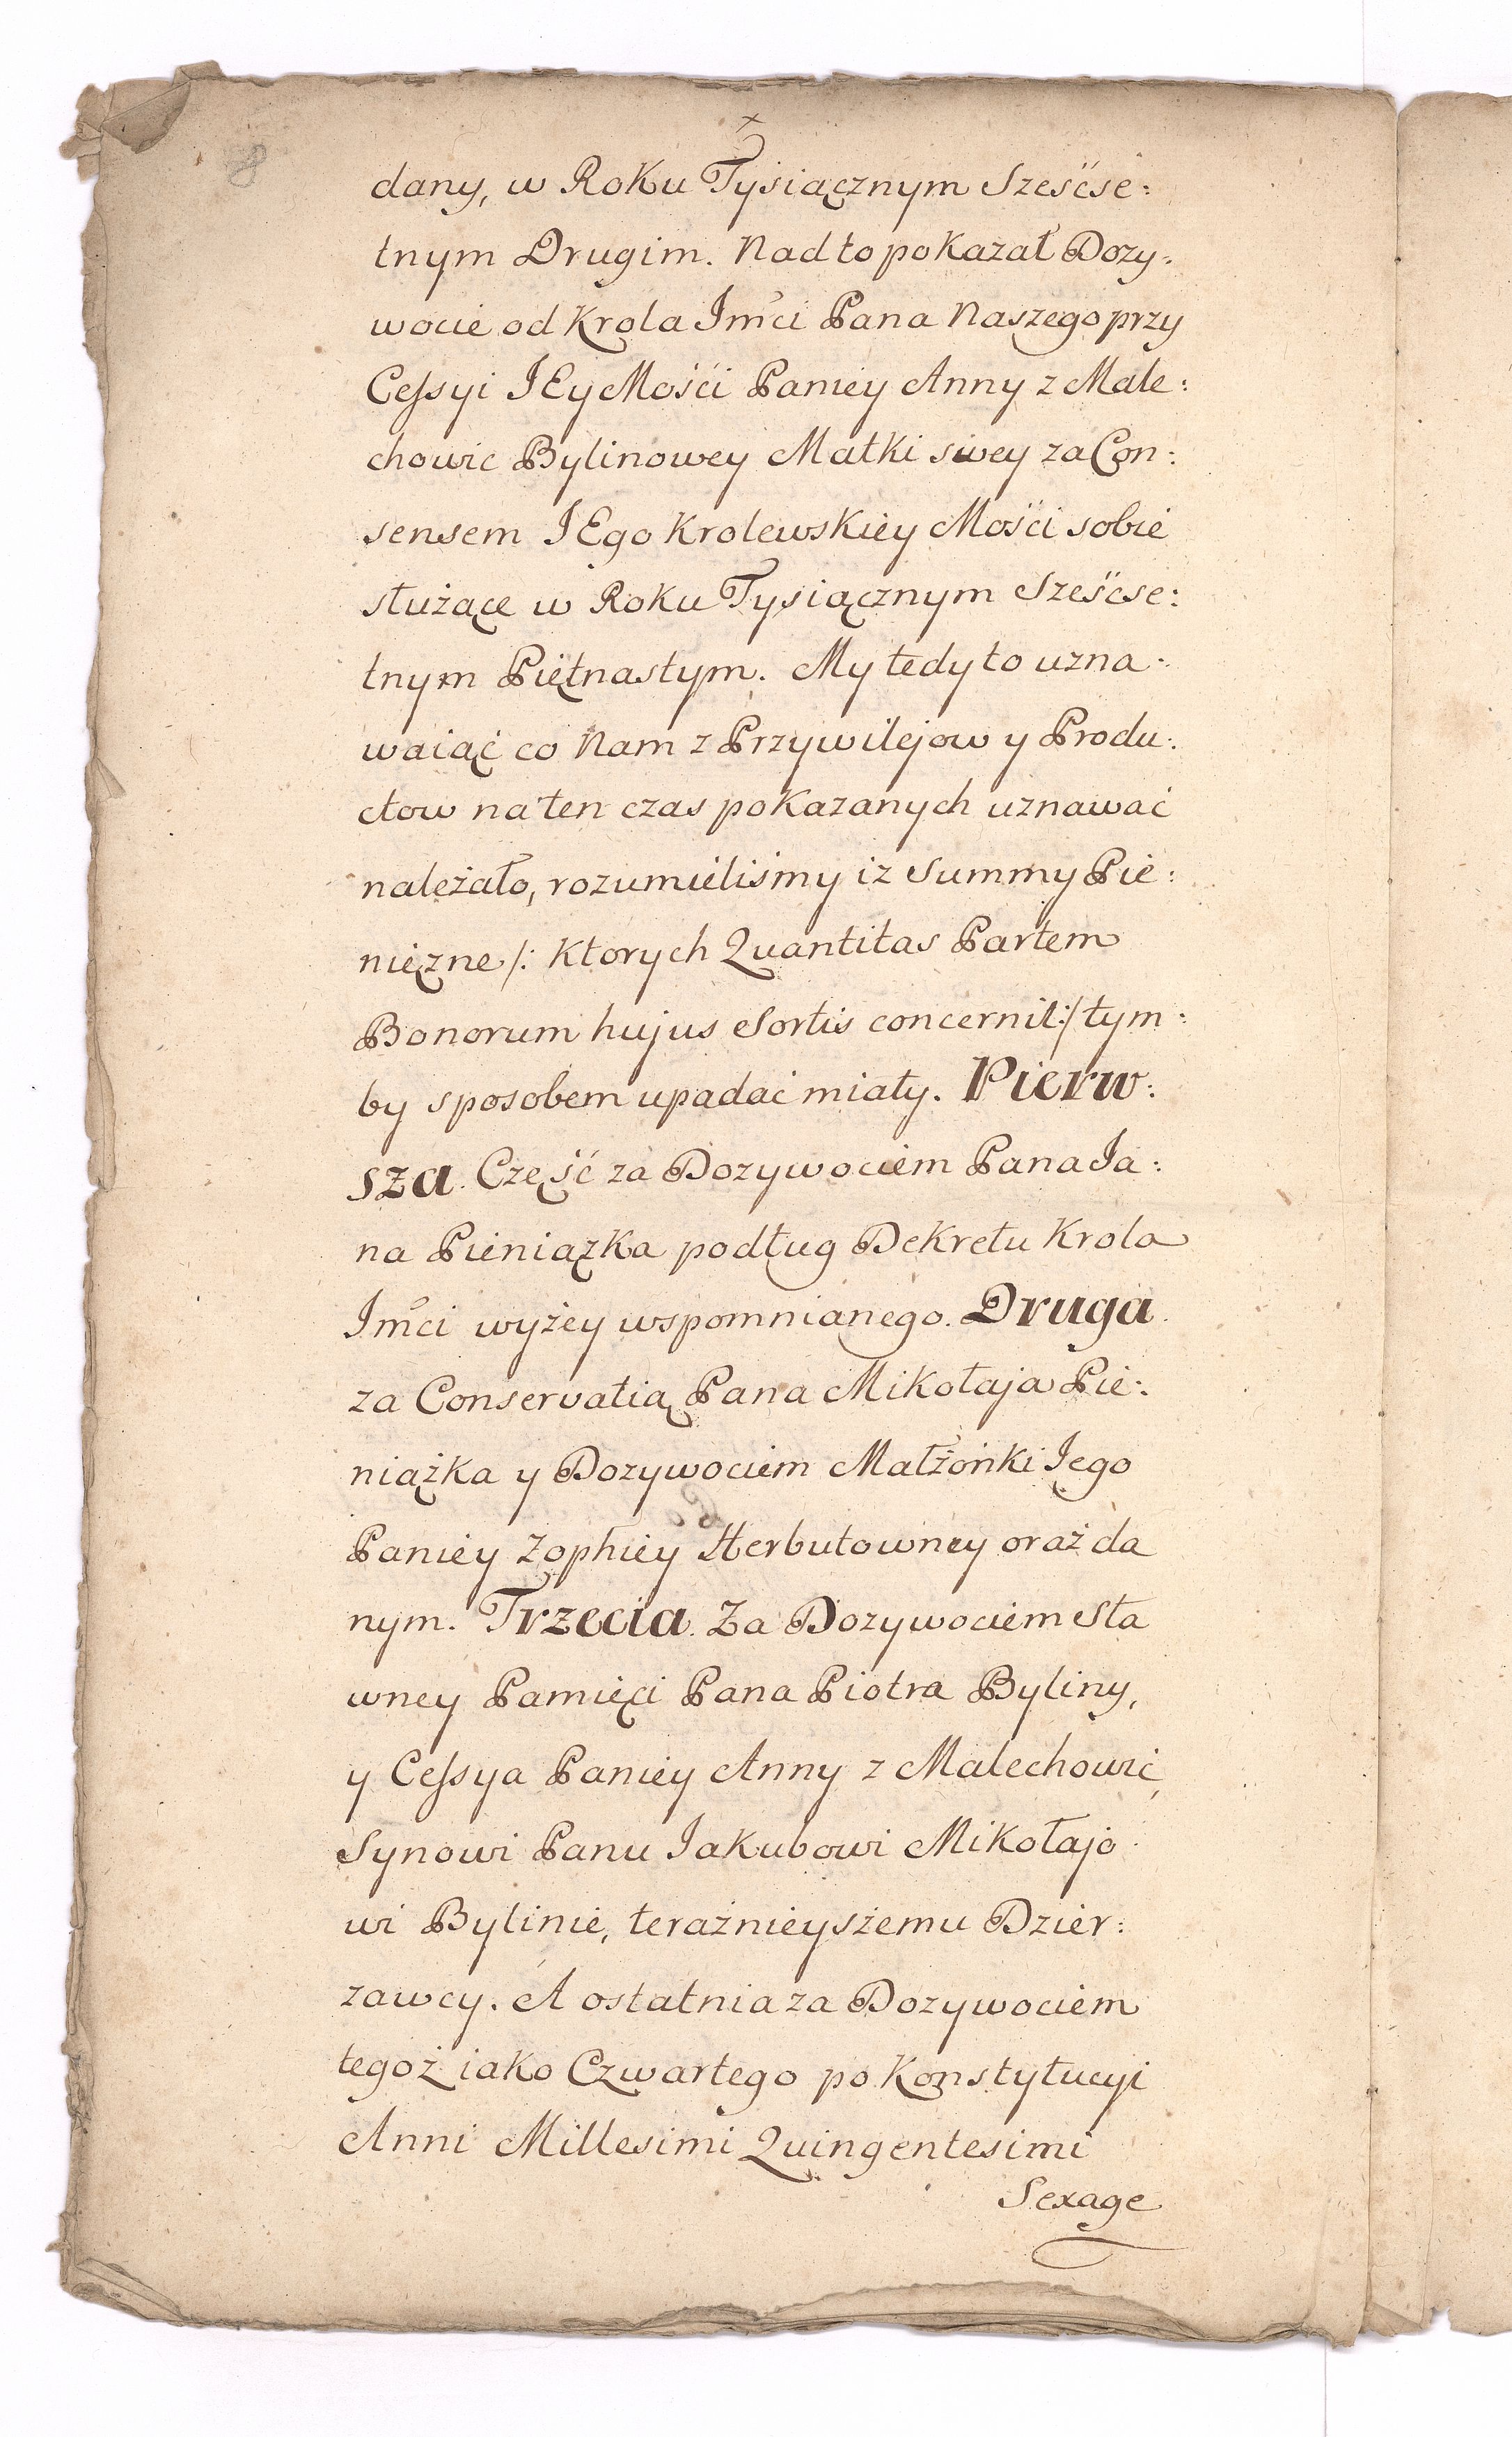 8
dany, w Roku Tysiącznym Szesćse:
tnym Drugim. Nad to pokazał Dozy:
wocie od Krola Jmći Pana Naszego przy
Cessyi JEy Mośći Paniey Anny z Male:
chowic Bylinowey Matki swey za Con:
sensem JEgo Krolewskiey Mośći sobie
służące w Roku Tysiącznym Sześcse:
tnym Piętnastym. My tedy to uzna:
waiąć co Nam z Przywilejow y Produ:
ctow na ten czas pokazanych uznawać
należało, rozumieliśmy iz Summy Pie:
nięzne /: Ktorych Quantitas Partem
Bonorum hujus Sortis concernit :/ tym:
by sposobem upadać miały. Pierw:
sza. Część za Dozywociem Pana Ja:
na Pieniązka podług Dekretu Krola
Jmći wyżey wspomnianego. Druga.
za Conservatią Pana Mikołaja Pie:
niążka y Dozywociem Małżonki Jego
Paniey Zophiey Herbutowney oraż da
nym. Trzecia. Za Dozywociem Sła
wney Pamięci Pana Piotra Byliny,
y Cessya Paniey Anny z Malechowić,
Synowi Panu Jakubowi Mikołajo
wi Bylinie, teraźnieyszemu Dzier:
zawcy. A ostatnia za Dozywociem
tegoż iako Czwartego po Konstytucyi
Anni Millesimi Quingentesimi
Sexage